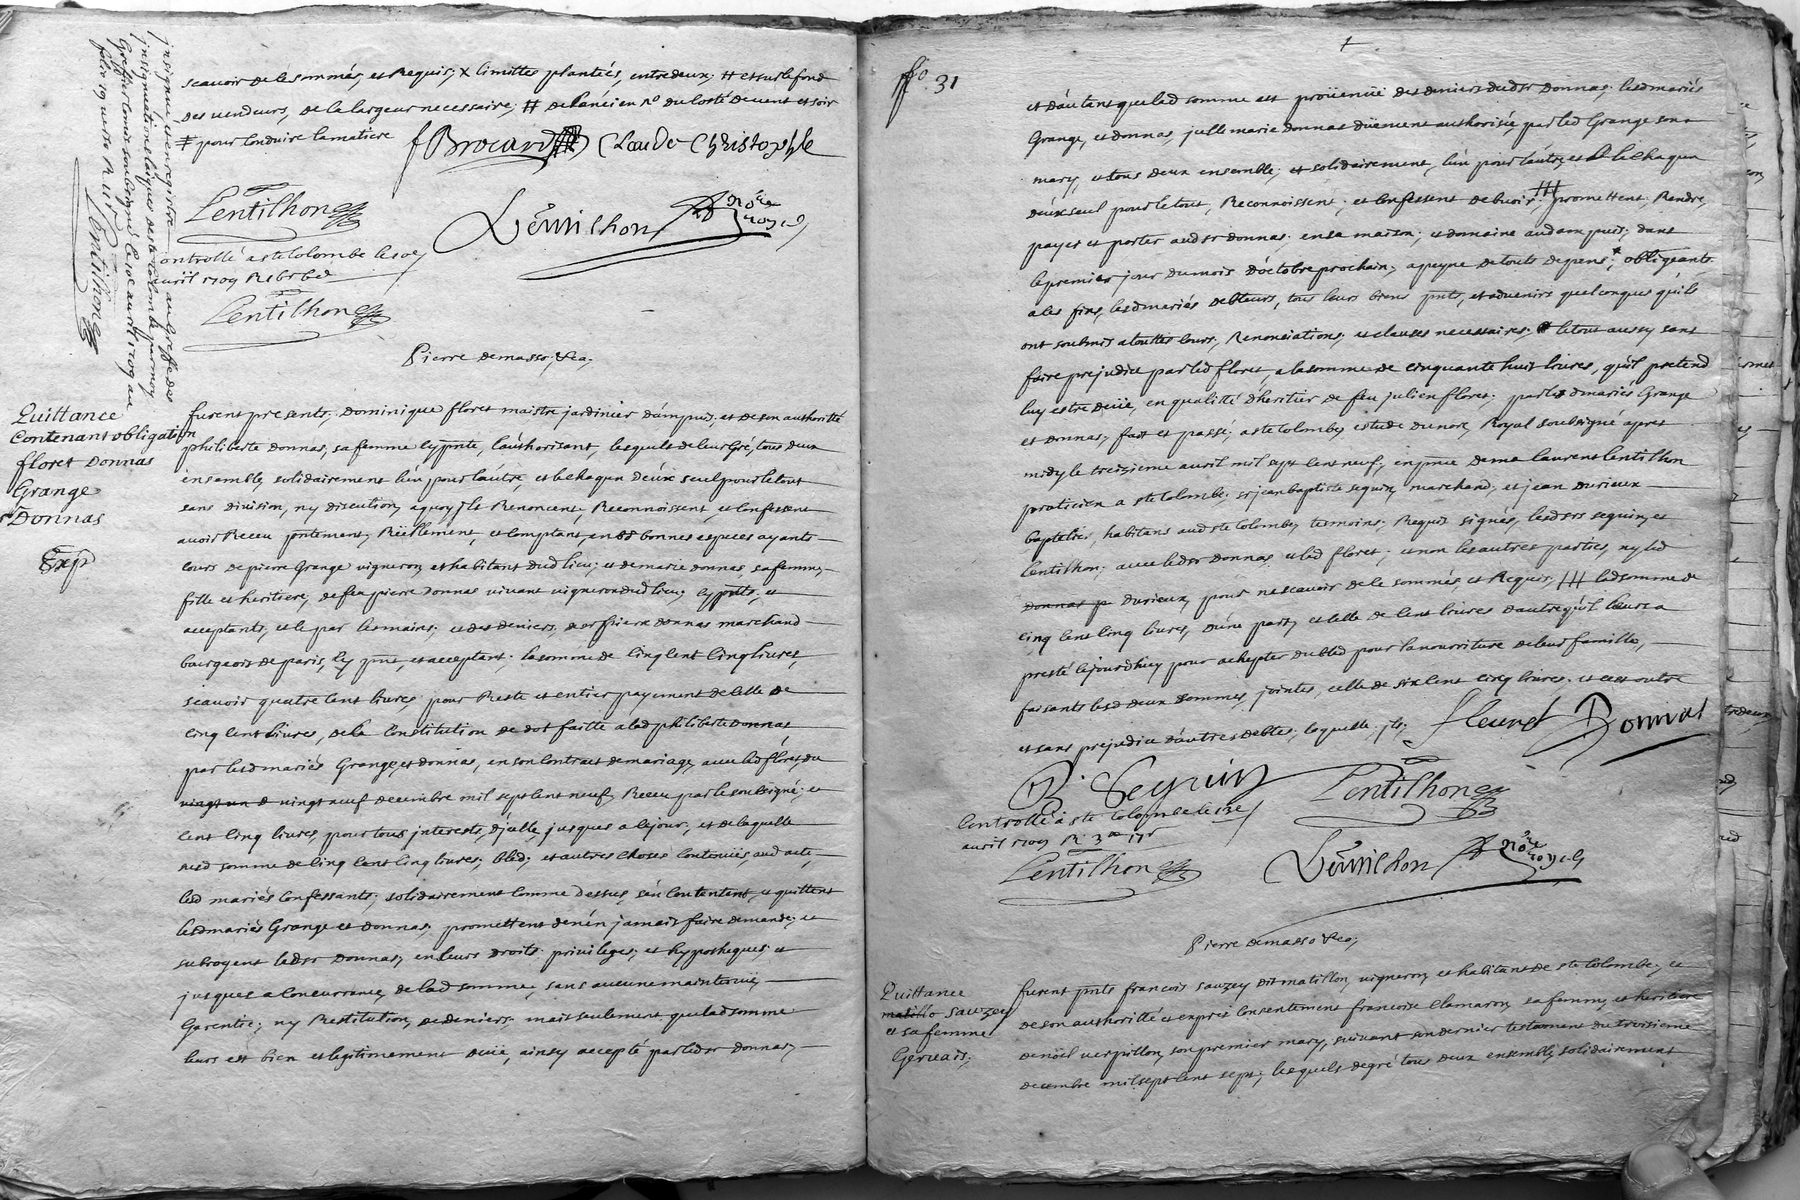 scavoir de ce sommés, et Requis; x limittes plantées, entredeux; # et sur le fond
des vendeurs, de la largeur necessaire; # de l'ancien no du costé de vent et soir
# pour conduire lamatiere
fBrocard Claude Christophle
Lentilhon
Lentilhon nore royal
controllé a ste colombe le 10e
avril 1709 R
Lentilhon
insigné, et enregistré au Greffe des
insignuations laiques de ste colombe par moy
Greffier commis soubsigné le 10e avril 1709 au
folio 19 verso R
Lentilhon
Pierre demasso &ca;
Quittance
Contenant obligation
floret Donnas
Grange
et Donnas
Exp
furent presents; Dominique floret maistre jardinier d'ampuis; et de son authorité
philiberte donnas, sa femme cy pnte, l'authorisant, lesquels de leur Gré, tous deux
ensemble, solidairement l'un pour l'autre, et le chaqun d'eux seul pour le tout
sans division, ny discution, a quoy ils Renoncent, Reconnoissent, et confessent
avoir Receu pntement, Réellement, et comptant, en bonnes especes ayants
cours de pierre Grange vigneron et habitant dud lieu; et de marie donnas, sa femme,
fille et heritiere, de feu pierre donnas vivant vigneron dud lieu; cy pnts, et
acceptants, et ce par les mains; et des deniers, de sr pierre donnas marchand
bourgeois de paris, cy pnt, et acceptant; la somme de cinq cent cinq livres,
scavoir quatre cent livres pour Reste et entier payement de celle de
cinq cent livres, de la Constitution de dot faitte a lad philiberte donnas
par lesd mariés Grange, et donnas, en son contract de mariage, avec led floret, du
vingt un d vingt neuf decembre mil sept cent neuf, Receu par le soubsigné; et
cent cinq livres, pour tous interests, d'icelle, jusques a ce jour; et de laquelle
susd somme de cinq cent cinq livres; bled; et autres choses contenües aud acte,
led mariés Confessants; solidairement comme dessus, s'en contentent, et quittent
lesd mariés Grange et Donnas; promettent de n'en jamais faire demande; et
subrogent ledsr Donnas; en leurs droits privileges; et hypotheques; et
jusques a concurrance, de lad somme, sans aucune maintenüe,
Garentie; ny Restitution, de deniers mais seulement que lad somme
leurs est bien et legitimement deüe, ainsy accepté par ledsr donnas;
fo 31
et d'autant que lad somme est proüenüe des deniers dudsr Donnas; lesd mariés
Grange, et donnas, icelle marie donnas düement authorisée, par led Grange son
mary, et tous deux ensemble; et solidairement, l'un pour l'autre, et le chaqun
d'eux seul pour le tout, Reconnoissent; et confessent debvoir; ### promettent Rendre,
payer et porter audsr donnas; en sa maison; et domaine aud ampuis; dans
le premier jour du mois d'octobre prochain; a peyne de touts depens; * obligeants
a ces fins, lesd mariés debteurs, tous leurs biens pnts, et advenirs quelconques qu'ils
ont soubmis a touttes cours, Renonciations; et clauses necessaires; le tout aussy sans
faire prejudice par led floret, a la somme de cinquante huit livres, qu'il pretend
luy estre deüe, en qualité d'heritier de feu julien floret; par lesd mariés Grange
et donnas; fait et passé, a ste colombe, estude du nore Royal soubsigné apres
midy le treizieme avril mil sept cent neuf; en pnce de me laurent lentilhon
praticien a ste colombe; sr jean baptiste seguin, marchand; et jean durieux
bapteliér, habitans aud ste colombe, temoins; Requis signés, lesdsrs seguin, et
lentilhon; avec ledsr donnas, et led floret; et non les autres parties, ny led
Donnas p Durieux, pour ne scavoir de ce sommés, et Requis; ### lad somme de
cinq cent cinq livres, d'une part, et celle de cent livres d'autre qu'il leurs a
presté cejourdhuy pour achepter du bled pour la nourriture de leur famille,
faisants lesd deux sommes, jointes, celle de six cent cinq livres; et c'est outre
et sans prejudice d'autres debtes; laquelle; ils;
fleuret Donnas
B. Seguin Lentilhon
Controllé a ste colombe le 13e
avril 1709 R
Lentilhon
Lentilhon nore royal
Pierre demasso &ca;
Quittance
matillo sauzey
et sa femme
Gervais;
furent pnts francois sauzey dit matillon, vigneron, et habitant de ste colombe; et
de son authorité et expres consentement francoise clamaron, sa femme, et heritiere
de noël verpillon, son premier mary, suivant son dernier testament du troisieme
decembre mil sept cent sept; lesquels de gré tous deux ensemble, solidairement